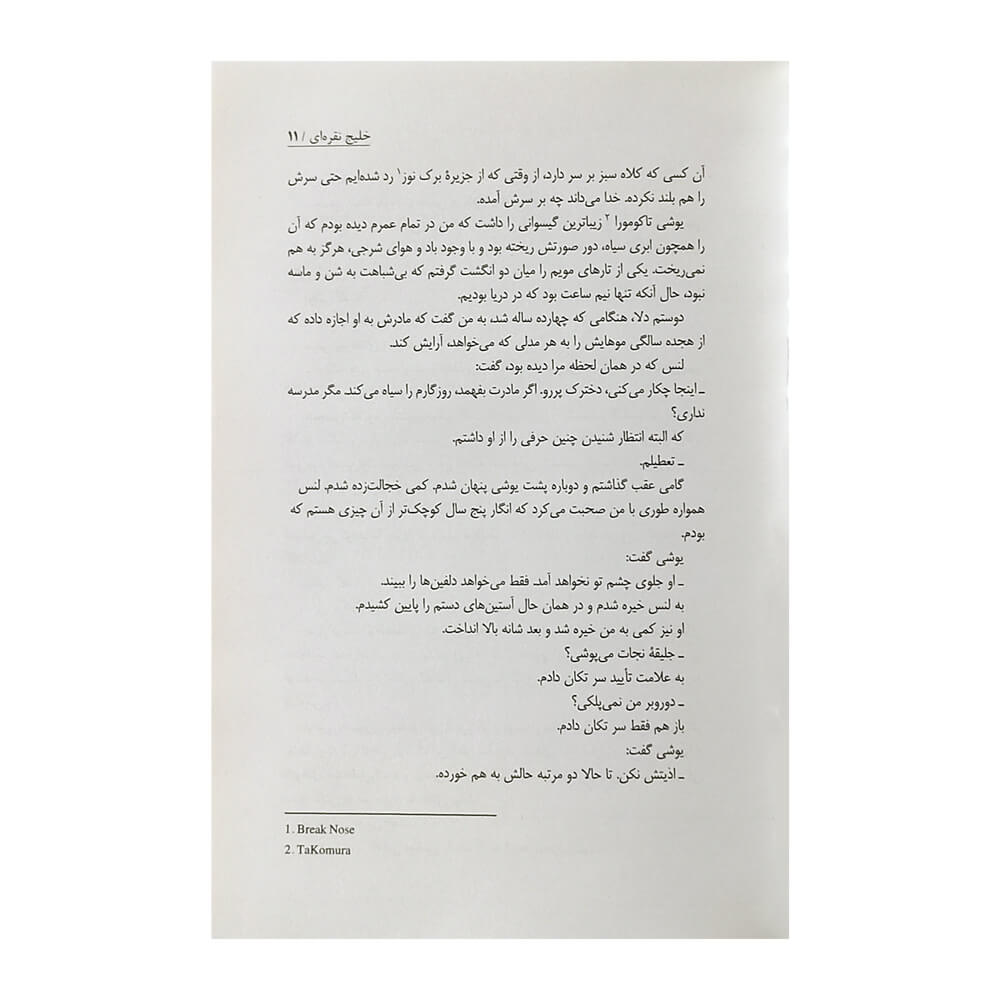 خلیج نقره‌ای / ۱۱
آن کسی که کلاه سبز بر سر دارد، از وقتی که از جزیرهٔ برک نوز۱ رد شده‌ایم حتی سرش
را هم بلند نکرده. خدا می‌داند چه بر سرش آمده.
یوشی تاکومورا ۲ زیباترین گیسوانی را داشت که من در تمام عمرم دیده بودم که آن
را همچون ابری سیاه، دور صورتش ریخته بود و با وجود باد و هوای شرجی، هرگز به هم
نمی‌ریخت. یکی از تارهای مویم را میان دو انگشت گرفتم که بی‌شباهت به شن و ماسه
نبود، حال آنکه تنها نیم ساعت بود که در دریا بودیم.
دوستم دلا، هنگامی که چهارده ساله شد، به من گفت که مادرش به او اجازه داده که
از هجده سالگی موهایش را به هر مدلی که می‌خواهد، آرایش کند.
لنس که در همان لحظه مرا دیده بود، گفت:
ـ اینجا چکار می‌کنی، دخترک پررو. اگر مادرت بفهمد، روزگارم را سیاه می‌کند. مگر مدرسه
نداری؟
که البته انتظار شنیدن چنین حرفی را از او داشتم.
ـ تعطیلم.
گامی عقب گذاشتم و دوباره پشت یوشی پنهان شدم. کمی خجالت‌زده شدم. لنس
همواره طوری با من صحبت می‌کرد که انگار پنج سال کوچک‌تر از آن چیزی هستم که
بودم.
یوشی گفت:
ـ او جلوی چشم تو نخواهد آمد. فقط می‌خواهد دلفین‌ها را ببیند.
به لنس خیره شدم و در همان حال آستین‌های دستم را پایین کشیدم.
او نیز کمی به من خیره شد و بعد شانه بالا انداخت.
ـ جلیقهٔ نجات می‌پوشی؟
به علامت تأیید سر تکان دادم.
ـ دوروبر من نمی‌پلکی؟
باز هم فقط سر تکان دادم.
یوشی گفت:
ـ اذیتش نکن. تا حالا دو مرتبه حالش به هم خورده.
1. Break Nose
2. TaKomura